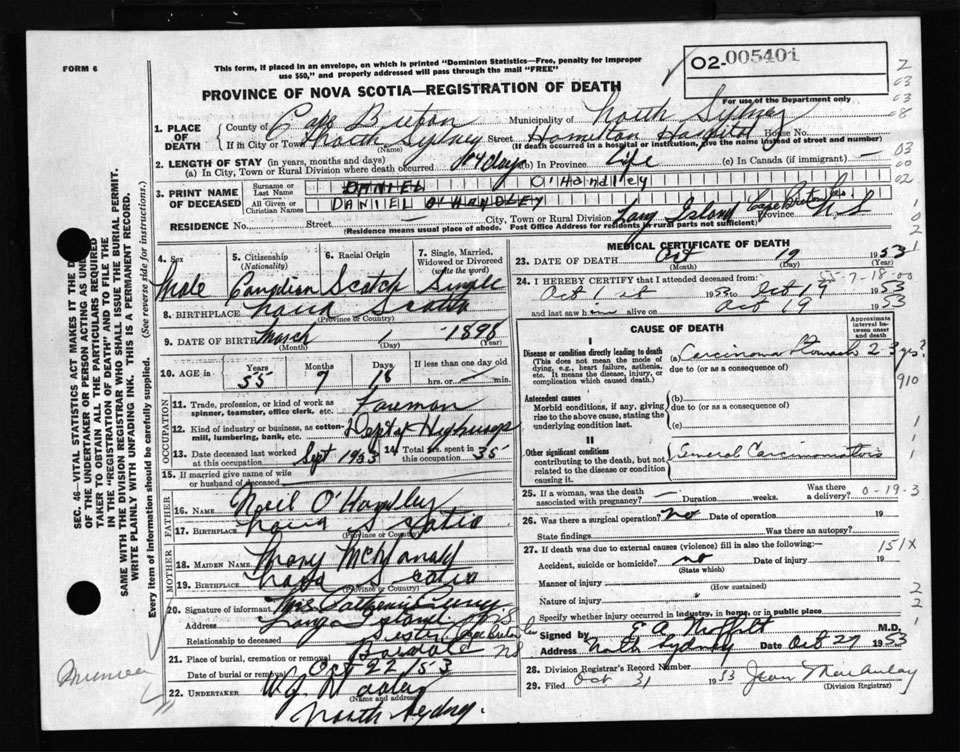 FORM 6
This form, if placed in an envelope, on which is printed "Dominion Statistics—Free, penalty for improper
use $50," and properly addressed will pass through the mail "FREE"
02-005401
For use of the Department only
PROVINCE OF NOVA SCOTIA—REGISTRATION OF DEATH
SEC. 46—VITAL STATISTICS ACT MAKES IT THE D
OF THE UNDERTAKER OR PERSON ACTING AS UNDER
TAKER TO OBTAIN ALL THE PARTICULARS REQUIRED
IN THE "REGISTRATION OF DEATH" AND TO FILE THE
SAME WITH THE DIVISION REGISTRAR WHO SHALL ISSUE THE BURIAL PERMIT.
WRITE PLAINLY WITH UNFADING INK. THIS IS A PERMANENT RECORD.
Every item of information should be carefully supplied. (See reverse side for instructions.)
1. PLACE OF DEATH
County of Cape Breton Municipality of North Sydney
If in City or Town North Sydney Street Hamilton Hospital House No.
(Name) (If death occurred in a hospital or institution, give the name instead of street and number)
2. LENGTH OF STAY (in years, months and days)
(a) In City, Town or Rural Division where death occurred days (b) In Province Life (c) In Canada (if immigrant) —
3. PRINT NAME OF DECEASED
Surname or Last Name DANIEL O'Handley
All Given or Christian Names DANIEL O'HANDLEY
RESIDENCE No. Street City, Town or Rural Division Long Island Cape Breton Province N.S
(Residence means usual place of abode. Post Office Address for residents in rural parts not sufficient)
4. Sex Male
5. Citizenship (Nationality) Canadian
6. Racial Origin Scotch
7. Single, Married, Widowed or Divorced (write the word) Single
8. BIRTHPLACE Nova Scotia
(Province or Country)
9. DATE OF BIRTH March 1898
(Month) (Day) (Year)
10. AGE in Years Months Days If less than one day old
55 7 18 hrs. or — min.
OCCUPATION
11. Trade, profession, or kind of work as spinner, teamster, office clerk, etc. Foreman
12. Kind of industry or business, as cotton-mill, lumbering, bank, etc. Dept of Highways
13. Date deceased last worked at this occupation Sept 1953 14. Total yrs. spent in this occupation 35
15. If married give name of wife or husband of deceased
FATHER
16. NAME Neil O'Handley
17. BIRTHPLACE Nova Scotia
(Province or Country)
MOTHER
18. MAIDEN NAME Mary McDonald
19. BIRTHPLACE Nova Scotia
(Province or Country)
20. Signature of informant Mrs Catherine
Address Long Island N.S
Relationship to deceased Sister Cape Breton NS
21. Place of burial, cremation or removal
Date of burial or removal Oct 22 153
22. UNDERTAKER W.J.
(Name and address)
North Sydney.
MEDICAL CERTIFICATE OF DEATH
23. DATE OF DEATH Oct 19 1953
(Month) (Day) (Year)
55-7-18-00
24. I HEREBY CERTIFY that I attended deceased from:
Oct 1st 1953 to Oct 19 1953
and last saw him alive on Oct 19 1953
CAUSE OF DEATH
Approximate interval between onset and death
I
Disease or condition directly leading to death
(This does not mean the mode of dying, e.g., heart failure, asthenia, etc. It means the disease, injury, or complication which caused death.)
(a) Carcinoma Stomach 2-3 yrs?
due to (or as a consequence of)
Antecedent causes
Morbid conditions, if any, giving rise to the above cause, stating the underlying condition last.
(b)
due to (or as a consequence of)
(c)
II
Other significant conditions
contributing to the death, but not related to the disease or condition causing it.
General Carcinomatosis
25. If a woman, was the death associated with pregnancy? — Duration weeks. Was there a delivery? 0-19-3
26. Was there a surgical operation? no Date of operation 19
State findings Was there an autopsy?
27. If death was due to external causes (violence) fill in also the following:— 151X
Accident, suicide or homicide? no
(State which)
Manner of injury
(How sustained)
Nature of injury
Specify whether injury occurred in industry, in home, or in public place
Signed by E A Moffitt M.D.
Address North Sydney Date Oct 27 1953
28. Division Registrar's Record Number
29. Filed Oct 31 1953 Jean MacAulay
(Division Registrar)